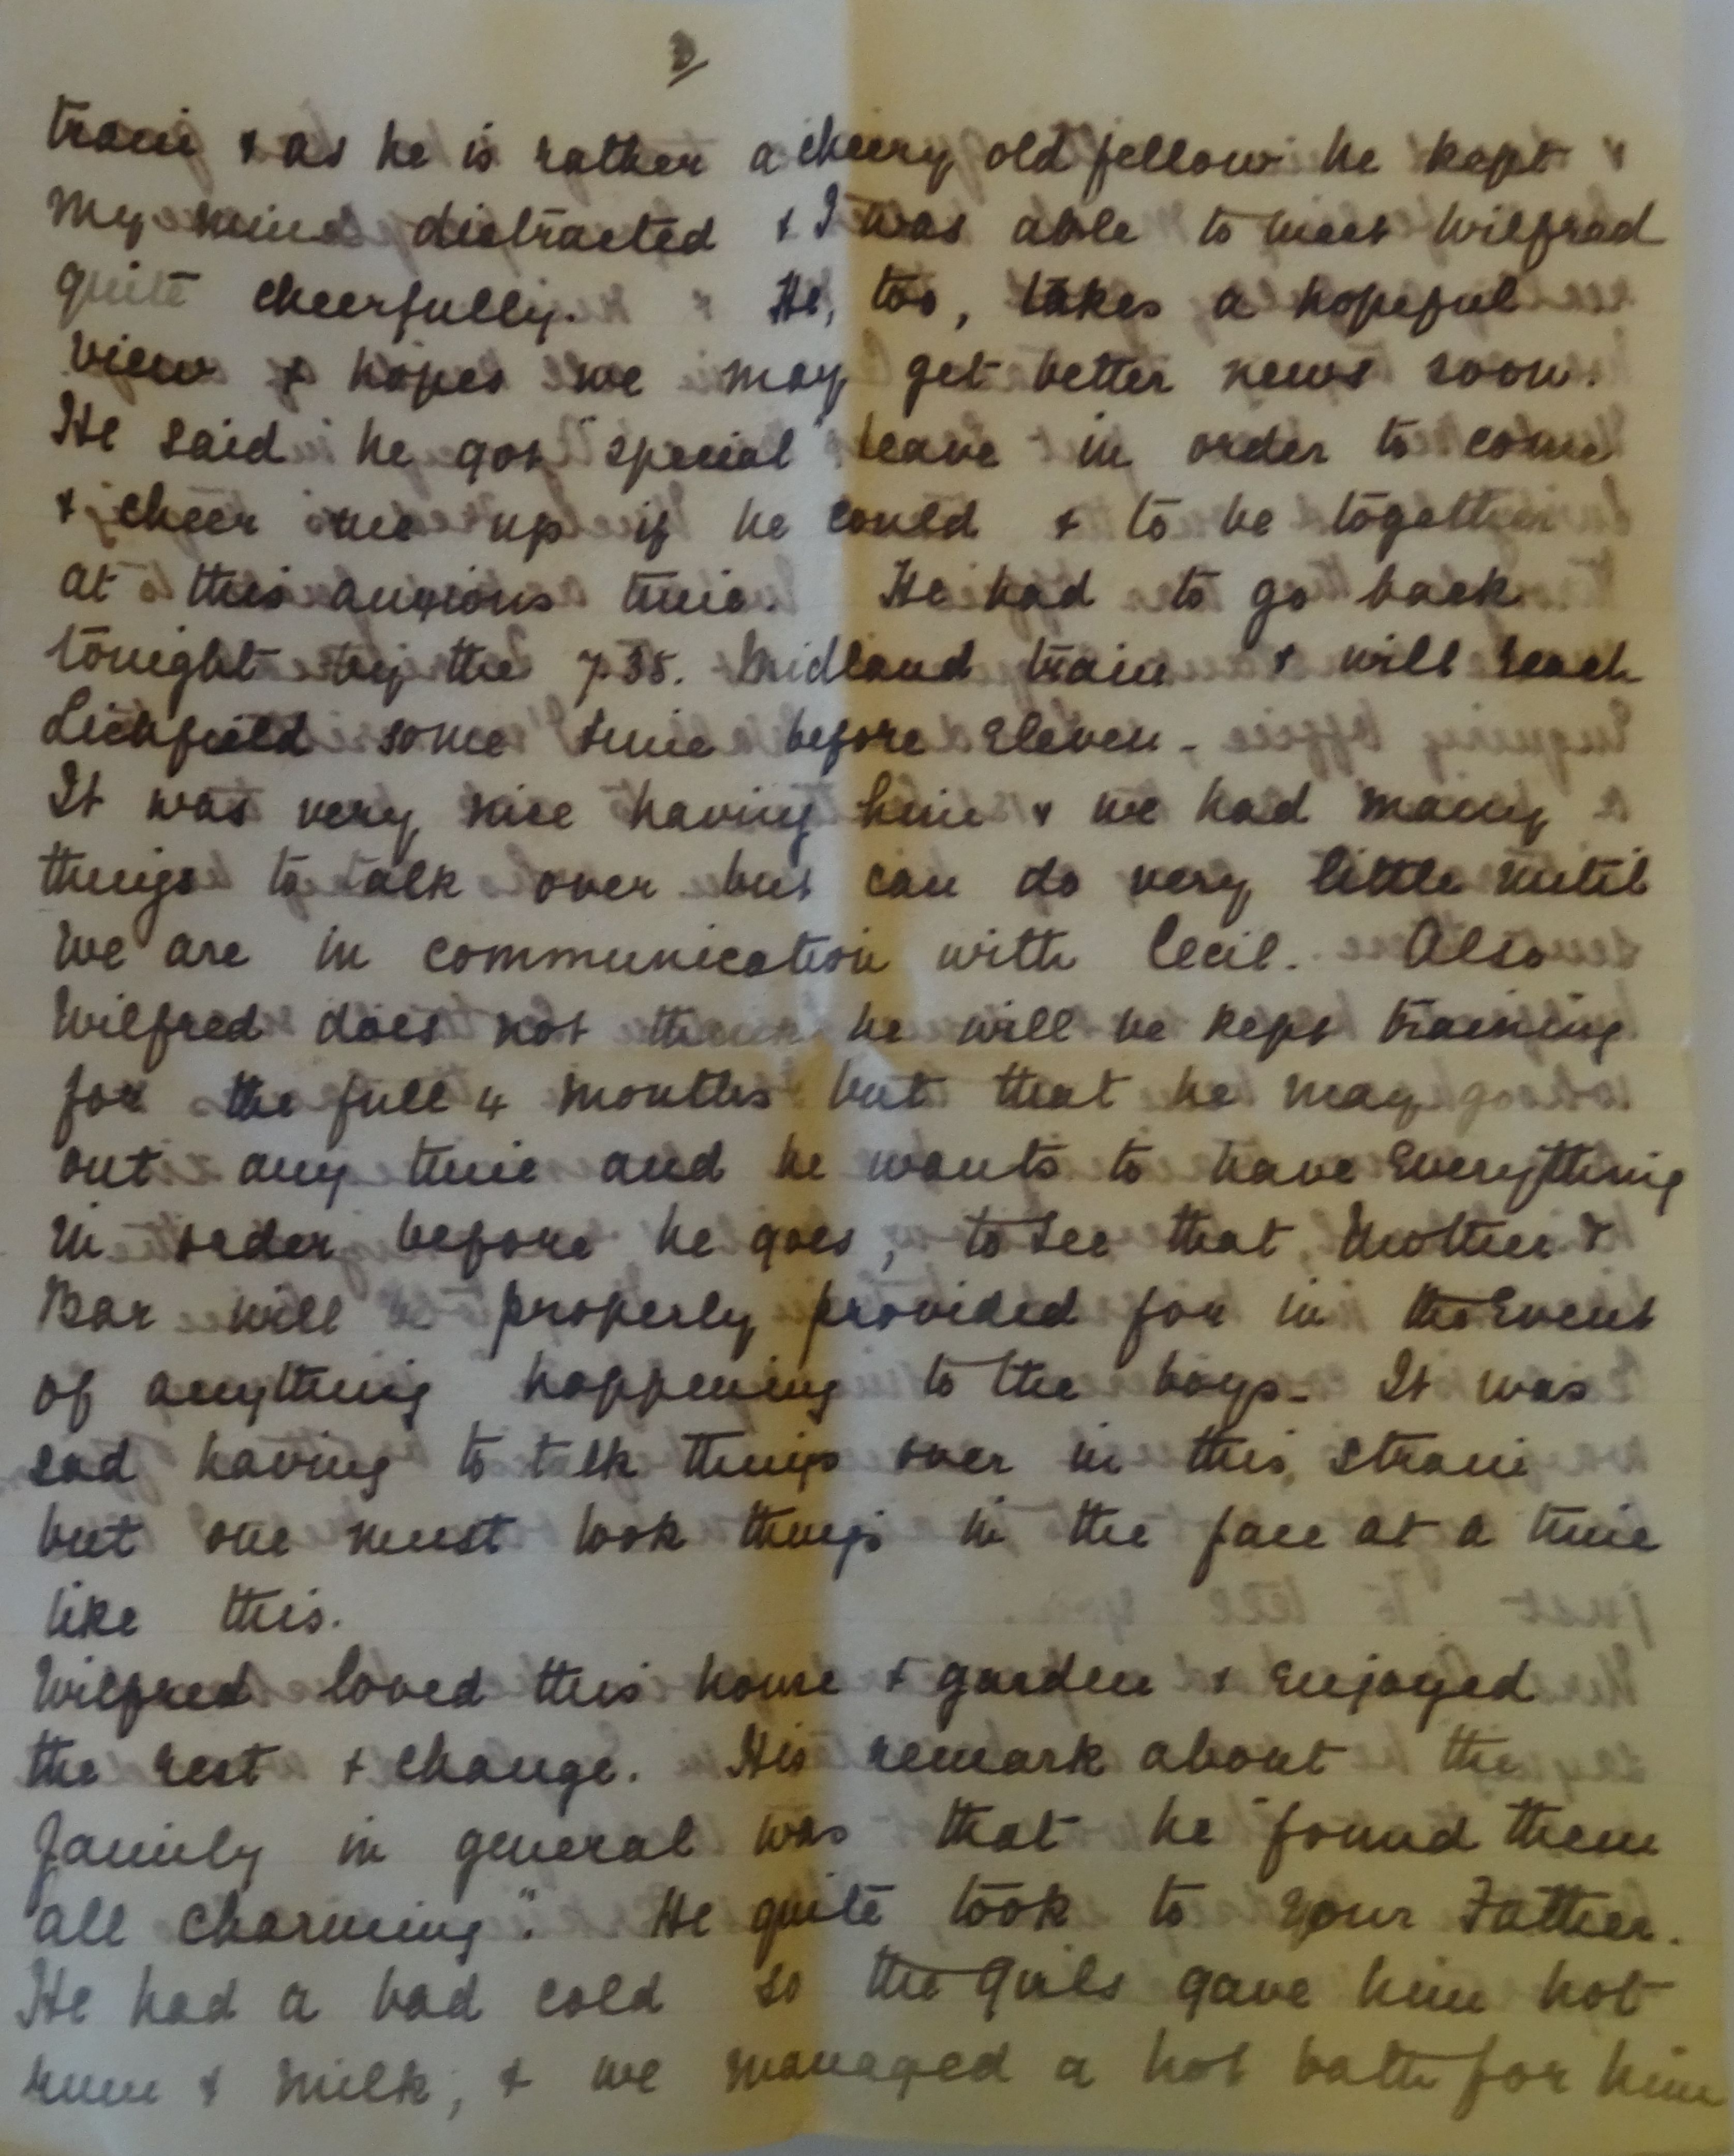 3/
train & as he is rather a cheery old fellow he kept
my mind distracted & I was able to meet Wilfred
quite cheerfully. He, too, takes a hopeful
view & hopes we may get better news soon.
He said he got "special" leave in order to come
& cheer me up if he could & to be together
at this anxious time. He had to go back
tonight by the 7.35. Midland train & will reach
Lichfield some time before Eleven -
It was very nice having him & we had many
things to talk over but can do very little until
we are in communication with Cecil. Also
Wilfred does not think he will be kept training
for the full 4 months but that he may go
out any time and he wants to have Everything
in order before he goes, to see that Mother &
Bar will be properly provided for in the Event
of anything happening to the boys - It was
sad having to talk things over in this strain
but one must look things in the face at a time
like this.
Wilfred loved this house & garden & Enjoyed
the rest & change. His remark about the
family in general was that he "found them
all charming". He quite took to your Father.
He had a bad cold so the girls gave him hot
rum & milk, & we managed a hot bath for him